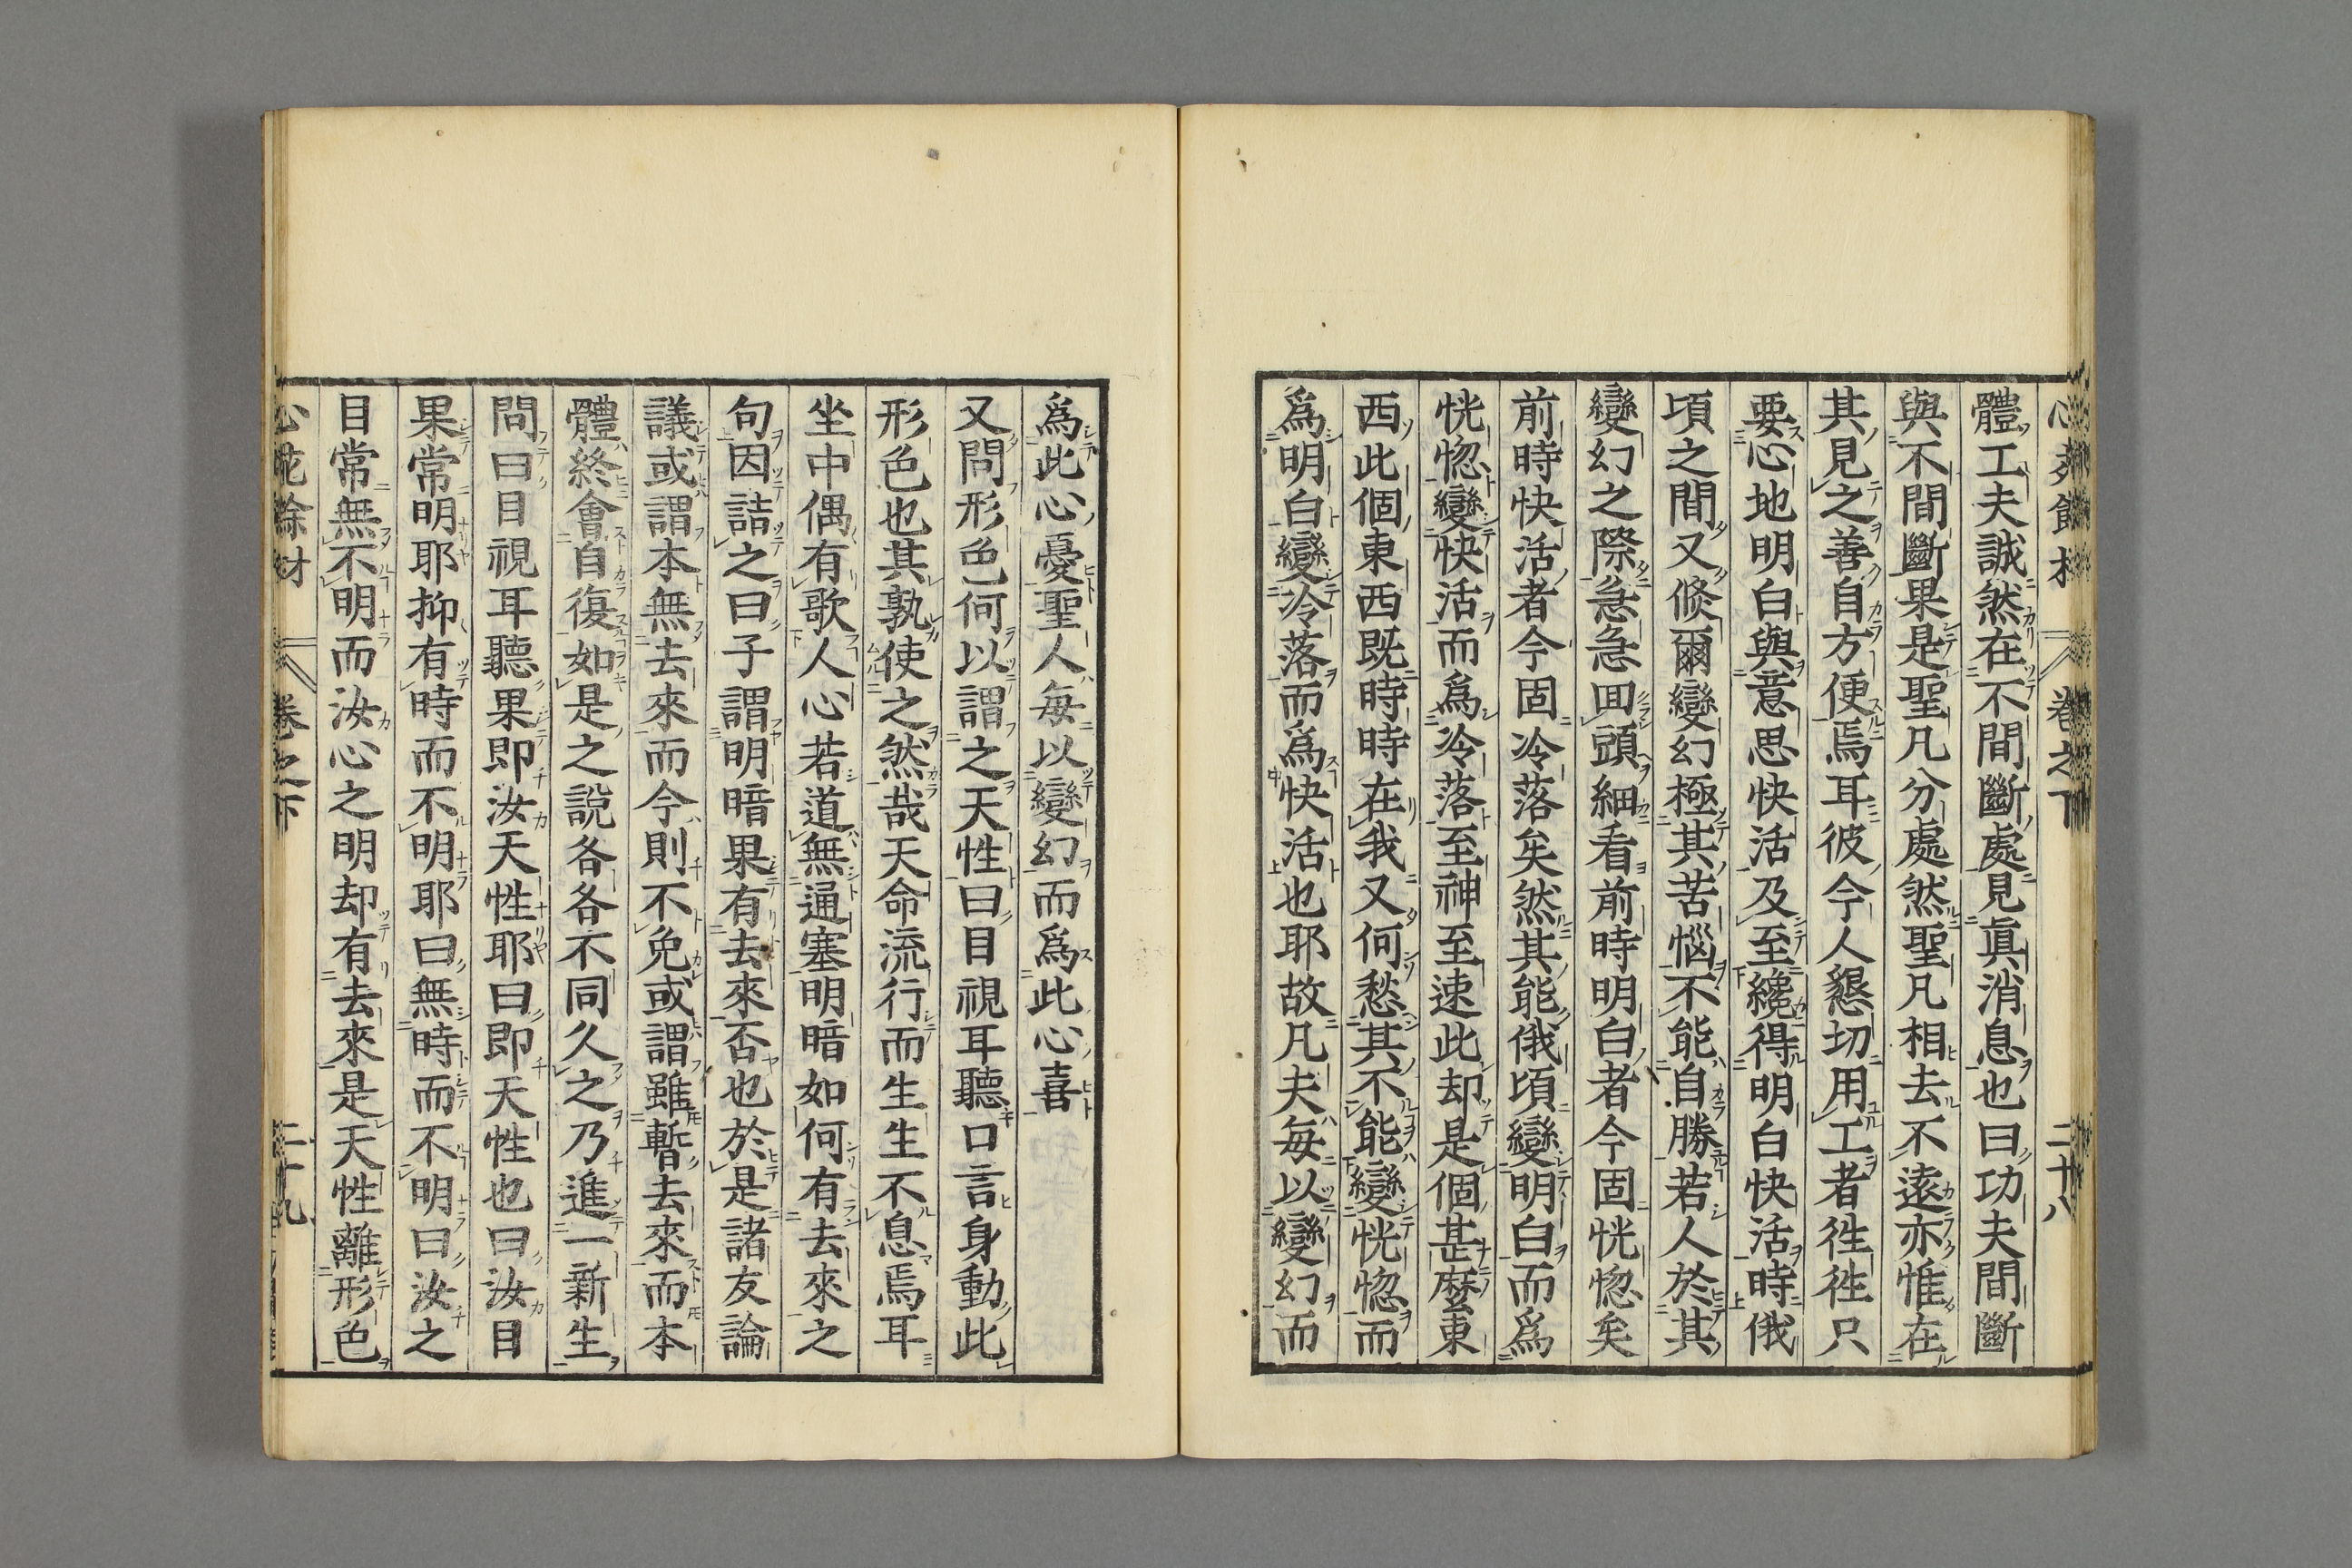 體工夫誠然在不間斷處見眞消息也曰功夫間斷
與不間斷果是聖凡分處然聖凡相去不遠亦惟在
其見之善自方便焉耳彼今人懇切用工者徃徃只
要心地明白與意思快活及至纔得明白快活時俄
頃之間又倏爾變幻極其苦惱不能自勝若人於其
變幻之際急急囬頭細看前時明白者今固恍惚矣
前時快活者今固冷落矣然其能俄頃變明白而爲
恍惚變快活而爲冷落至神至速此却是個甚麽東
西此個東西既時時在我又何愁其不能變恍惚而
爲明白變冷落而爲快活也耶故凡夫每以變幻而
卷之下
二十八
爲此心憂聖人每以變幻而爲此心喜
又問形色何以謂之天性曰目視耳聽口言身動此
形色也其孰使之然哉天命流行而生生不息焉耳
坐中偶有歌人心若道無通塞明暗如何有去來之
句因詰之曰子謂明暗果有去來否也於是諸友論
議或謂本無去來而今則不免或謂雖暫去來而本
體終會自復如是之說各各不同久之乃進一新生
問曰目視耳聽果即汝天性耶曰即天性也曰汝目
果常明耶抑有時而不明耶曰無時而不明曰汝之
目常無不明而汝心之明却有去來是天性離形色
卷之下
二十九